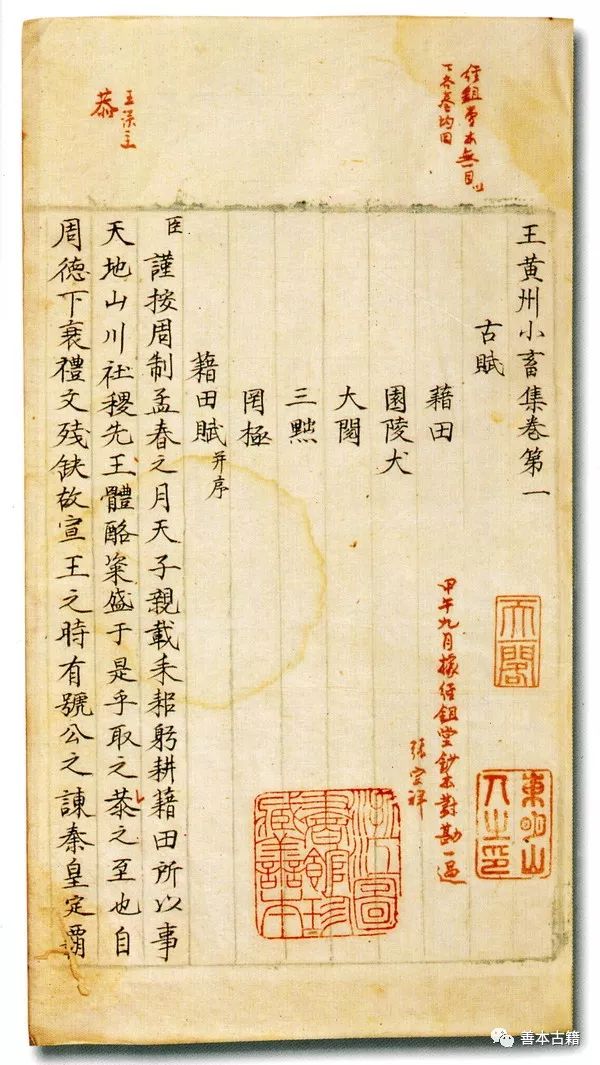 經鉏堂本無一目以
下各卷均同
王黃州小畜集卷第一
古賦
藉田
園陵犬
大閱
三黜
罔極
藉田賦并序
臣謹按周制孟春之月天子親載耒耜躬耕藉田所以事
天地山川社稷先王體酪粢盛于是乎取之恭之至也自
周德下衰禮文殘缺故宣王之時有號公之諫秦皇定霸
恭
甲午九月據經鉏堂鈔本對勘一過
張宗祥
天閣
東明山
人之印
浙江圖
書館珍
藏善本
善本古籍